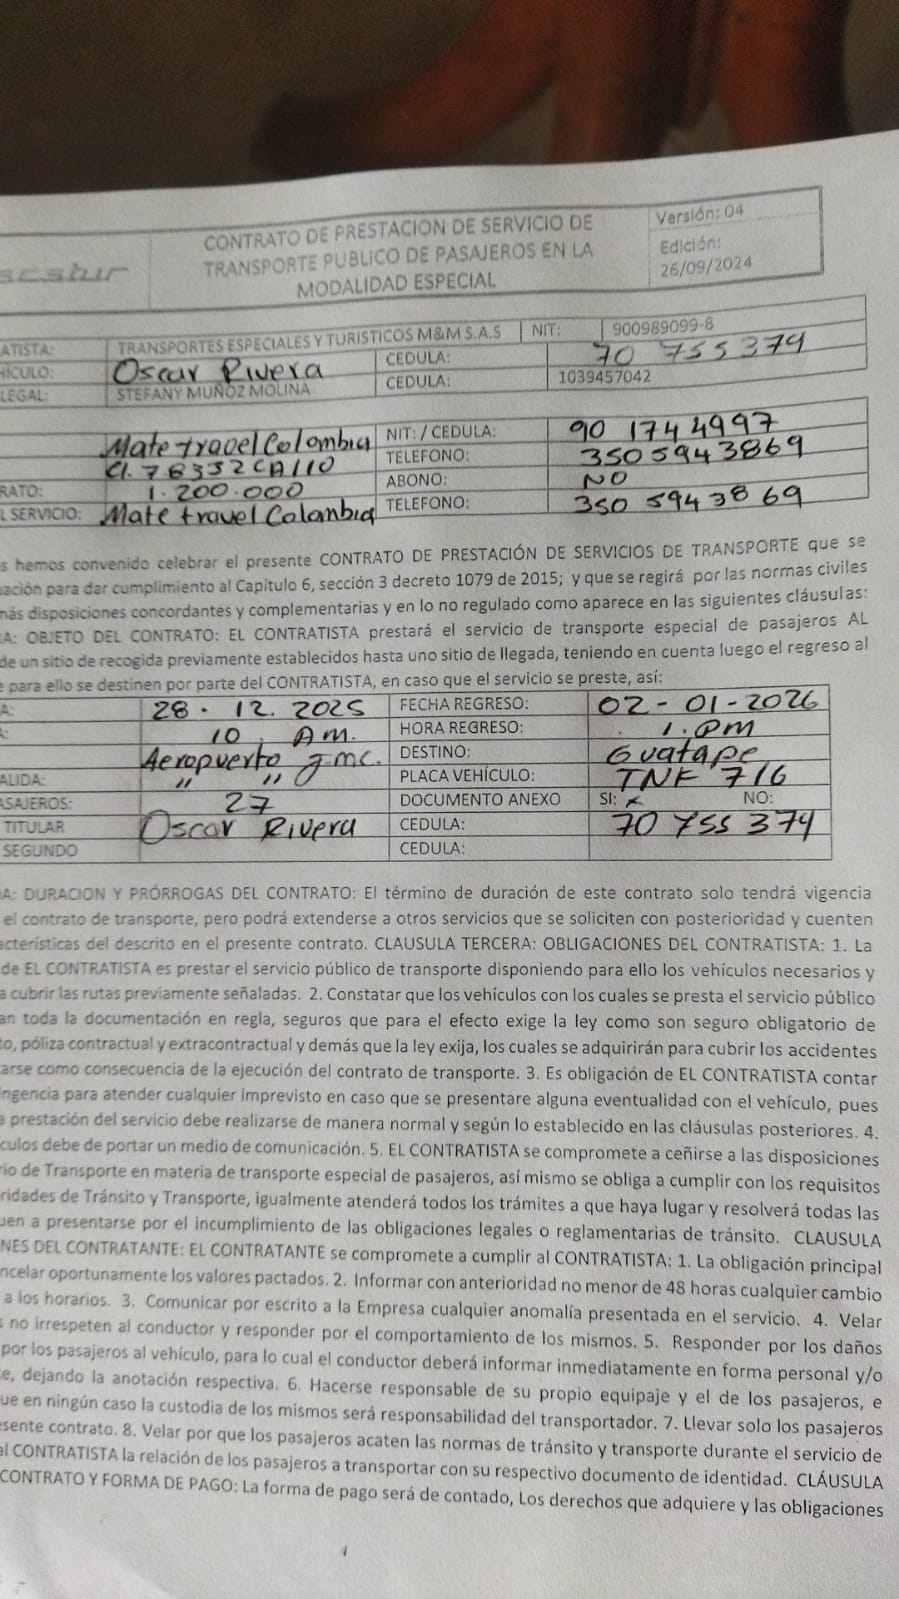 CONTRATO DE PRESTACION DE SERVICIO DE
TRANSPORTE PUBLICO DE PASAJEROS EN LA
MODALIDAD ESPECIAL
Versión: 04
Edición:
26/09/2024
ATISTA: TRANSPORTES ESPECIALES Y TURISTICOS M&M S.A.S NIT: 900989099-8
HÍCULO: Oscar Rivera CEDULA: 70 755 374
LEGAL: STEFANY MUÑOZ MOLINA CEDULA: 1039457042
Mate travel Colombia NIT: / CEDULA: 90 1744997
TELEFONO: 350 5943869
RATO: 1.200.000 ABONO: NO
L SERVICIO: Mate travel Colombia TELEFONO: 350 5943869
s hemos convenido celebrar el presente CONTRATO DE PRESTACIÓN DE SERVICIOS DE TRANSPORTE que se
ación para dar cumplimiento al Capítulo 6, sección 3 decreto 1079 de 2015; y que se regirá por las normas civiles
más disposiciones concordantes y complementarias y en lo no regulado como aparece en las siguientes cláusulas:
RA: OBJETO DEL CONTRATO: EL CONTRATISTA prestará el servicio de transporte especial de pasajeros AL
de un sitio de recogida previamente establecidos hasta uno sitio de llegada, teniendo en cuenta luego el regreso al
e para ello se destinen por parte del CONTRATISTA, en caso que el servicio se preste, así:
A: 28.12.2025 FECHA REGRESO: 02-01-2026
A: 10 AM. HORA REGRESO: 1.PM
Aeropuerto jmc. DESTINO: Guatape
ALIDA: " " PLACA VEHÍCULO: TNK 716
ASAJEROS: 27 DOCUMENTO ANEXO SI: x NO:
TITULAR Oscar Rivera CEDULA: 70 755 374
SEGUNDO CEDULA:
DA: DURACION Y PRÓRROGAS DEL CONTRATO: El término de duración de este contrato solo tendrá vigencia
el contrato de transporte, pero podrá extenderse a otros servicios que se soliciten con posterioridad y cuenten
acterísticas del descrito en el presente contrato. CLAUSULA TERCERA: OBLIGACIONES DEL CONTRATISTA: 1. La
de EL CONTRATISTA es prestar el servicio público de transporte disponiendo para ello los vehículos necesarios y
a cubrir las rutas previamente señaladas. 2. Constatar que los vehículos con los cuales se presta el servicio público
an toda la documentación en regla, seguros que para el efecto exige la ley como son seguro obligatorio de
to, póliza contractual y extracontractual y demás que la ley exija, los cuales se adquirirán para cubrir los accidentes
arse como consecuencia de la ejecución del contrato de transporte. 3. Es obligación de EL CONTRATISTA contar
ingencia para atender cualquier imprevisto en caso que se presentare alguna eventualidad con el vehículo, pues
a prestación del servicio debe realizarse de manera normal y según lo establecido en las cláusulas posteriores. 4.
culos debe de portar un medio de comunicación. 5. EL CONTRATISTA se compromete a ceñirse a las disposiciones
rio de Transporte en materia de transporte especial de pasajeros, así mismo se obliga a cumplir con los requisitos
ridades de Tránsito y Transporte, igualmente atenderá todos los trámites a que haya lugar y resolverá todas las
uen a presentarse por el incumplimiento de las obligaciones legales o reglamentarias de tránsito. CLAUSULA
NES DEL CONTRATANTE: EL CONTRATANTE se compromete a cumplir al CONTRATISTA: 1. La obligación principal
ncelar oportunamente los valores pactados. 2. Informar con anterioridad no menor de 48 horas cualquier cambio
a los horarios. 3. Comunicar por escrito a la Empresa cualquier anomalía presentada en el servicio. 4. Velar
s no irrespeten al conductor y responder por el comportamiento de los mismos. 5. Responder por los daños
por los pasajeros al vehículo, para lo cual el conductor deberá informar inmediatamente en forma personal y/o
e, dejando la anotación respectiva. 6. Hacerse responsable de su propio equipaje y el de los pasajeros, e
ue en ningún caso la custodia de los mismos será responsabilidad del transportador. 7. Llevar solo los pasajeros
esente contrato. 8. Velar por que los pasajeros acaten las normas de tránsito y transporte durante el servicio de
al CONTRATISTA la relación de los pasajeros a transportar con su respectivo documento de identidad. CLÁUSULA
CONTRATO Y FORMA DE PAGO: La forma de pago será de contado, Los derechos que adquiere y las obligaciones